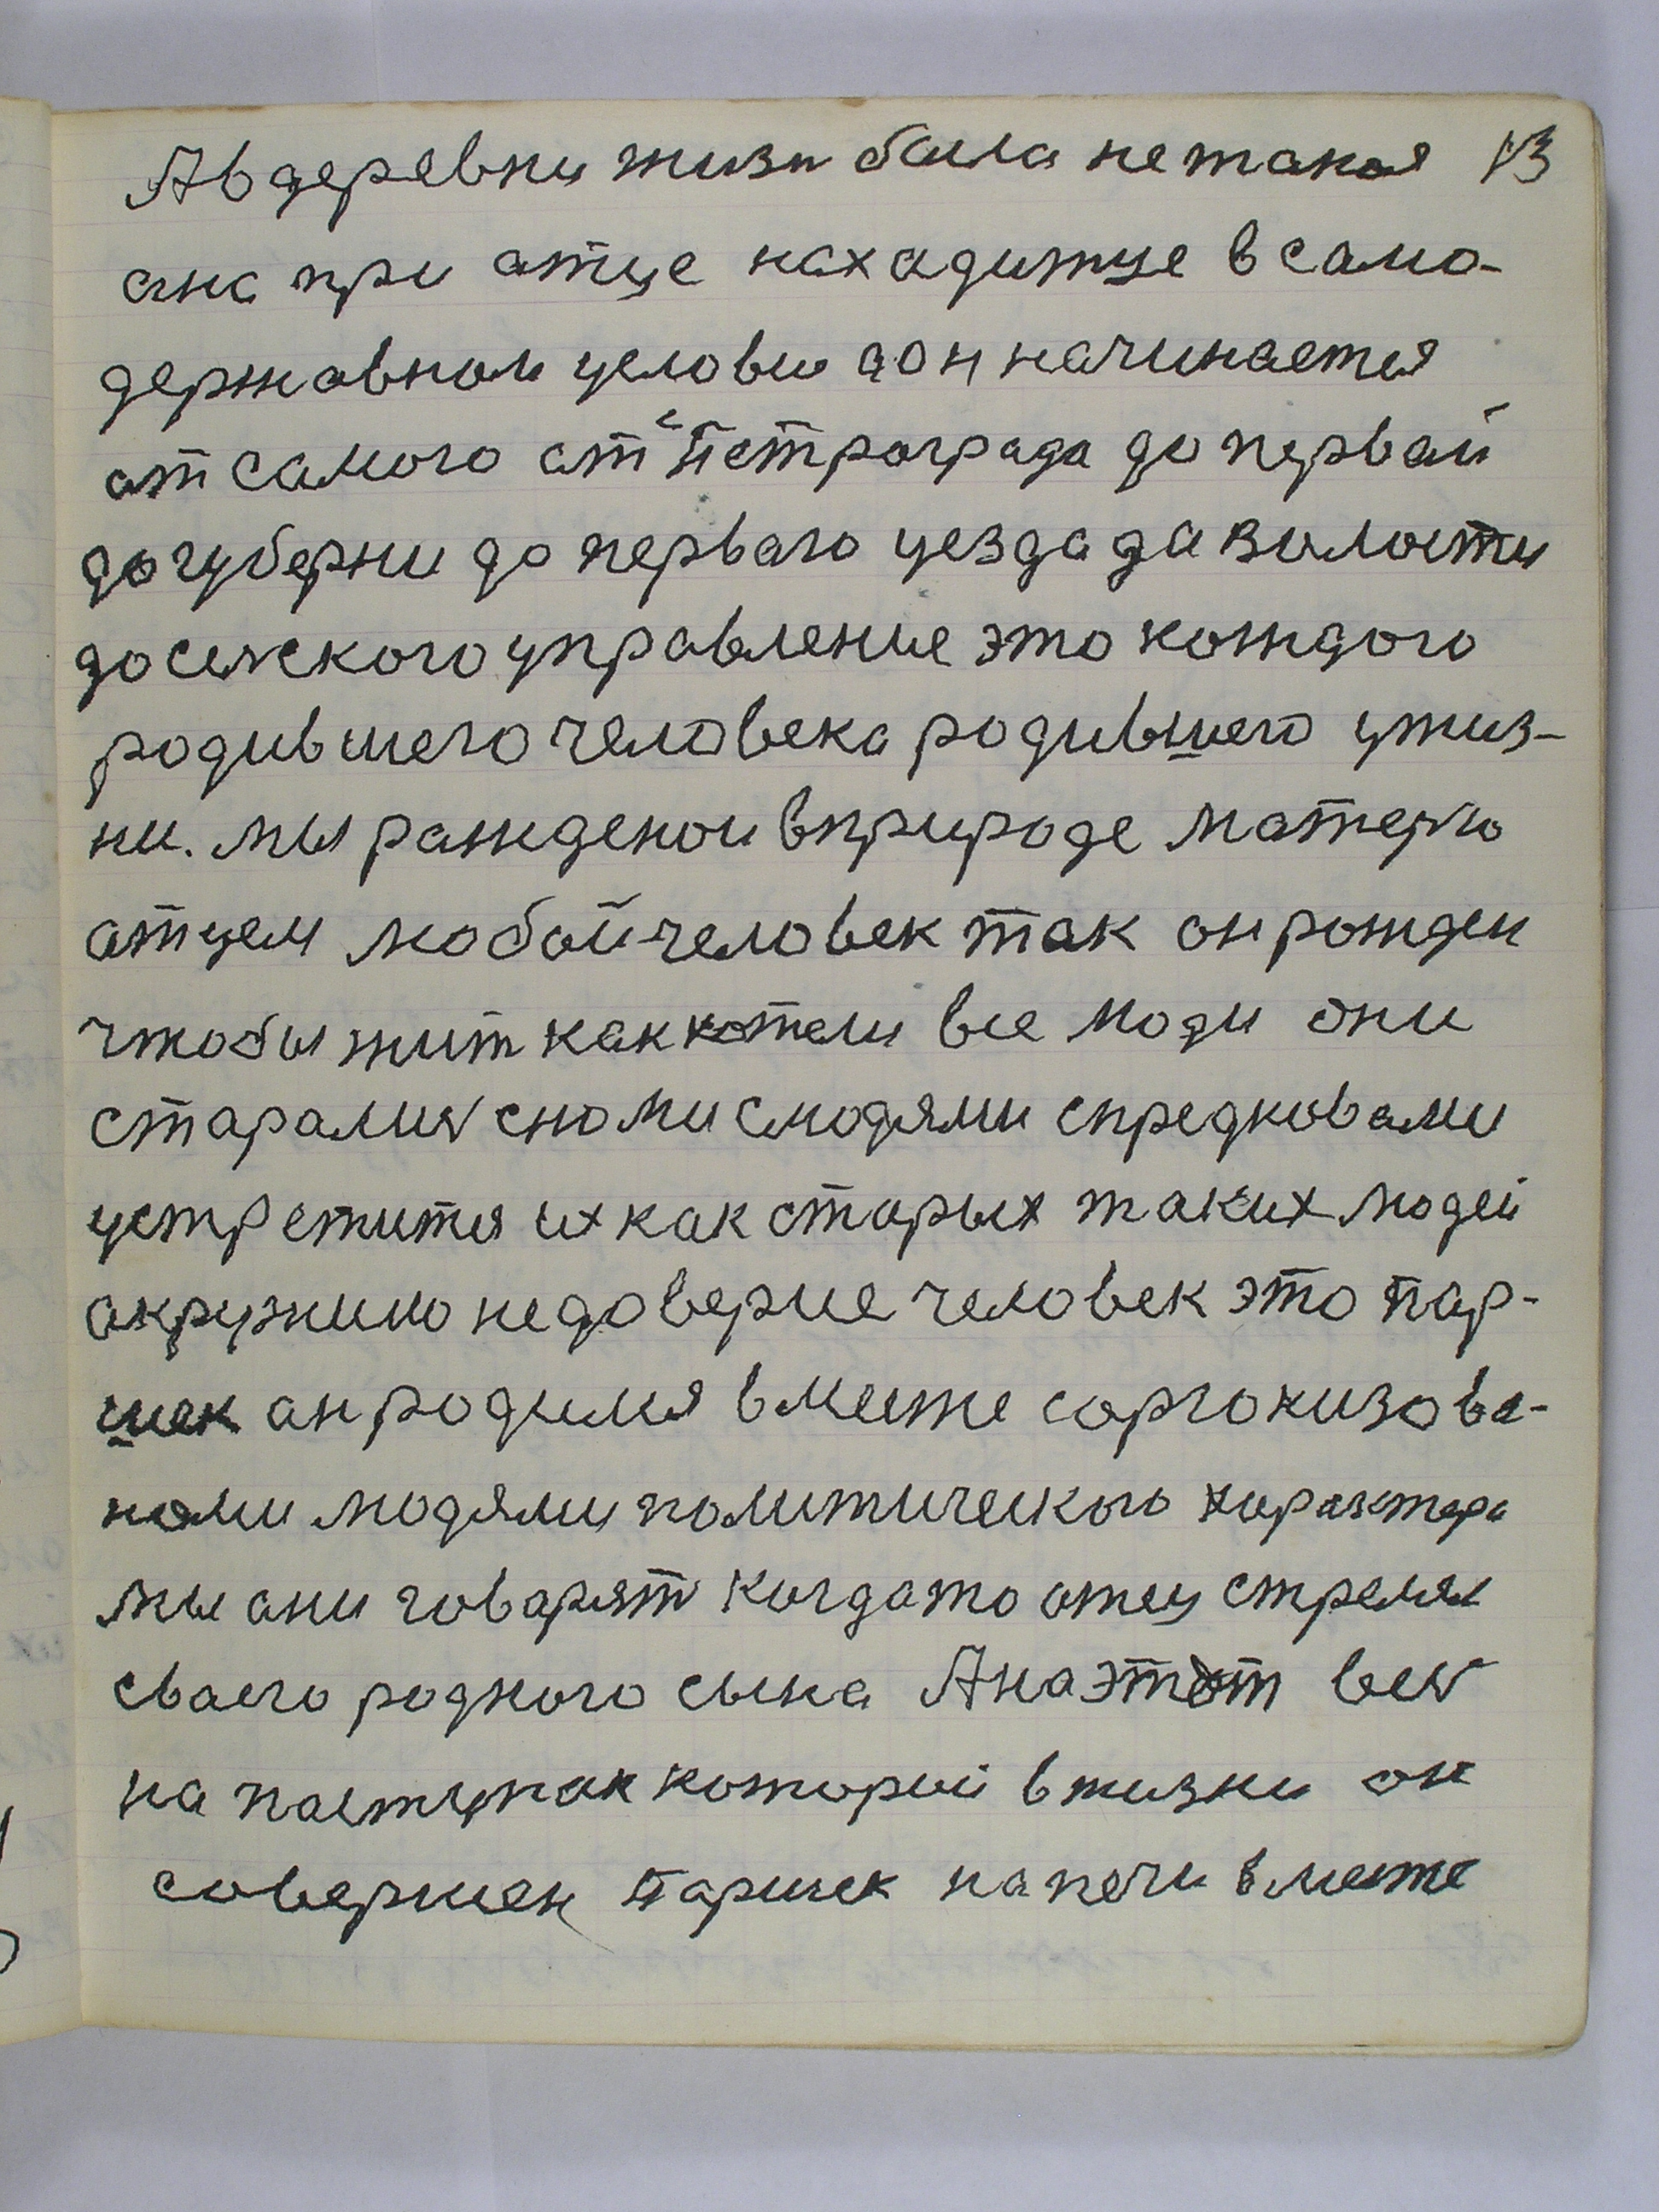 А в деревни жизн была не такая 13
ана при атце находитце в само-
державном условы дон начинается
ат самого ат Петрограда до первай
до губерни до перваго уезда да волости
до селского управление это кождого
родившего человека родившего ужиз-
ни. мы ражденои в природе матерю
атцем любой человек так он рожден
чтобы жит как хотели все люди они
старались снами с людями с предковами
устретится их как старых таких людей
акружило недоверие человек это пар-
шек ан родился в месте с органиозова-
нами людями политического характера
мы ани говарят когдато отец стрелял
сваего родного сына А на этот весь
на паступак которые в жизни он
совершен паришек на печи в месте